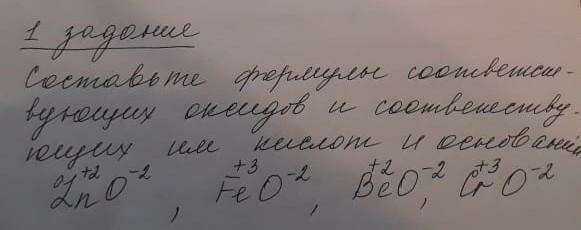 1 задание
Составьте формулы соответст-
вующих оксидов и соответству-
ющих им кислот и оснований
Zn⁺²O⁻², Fe⁺³O⁻², Be⁺²O⁻², Cr⁺³O⁻²